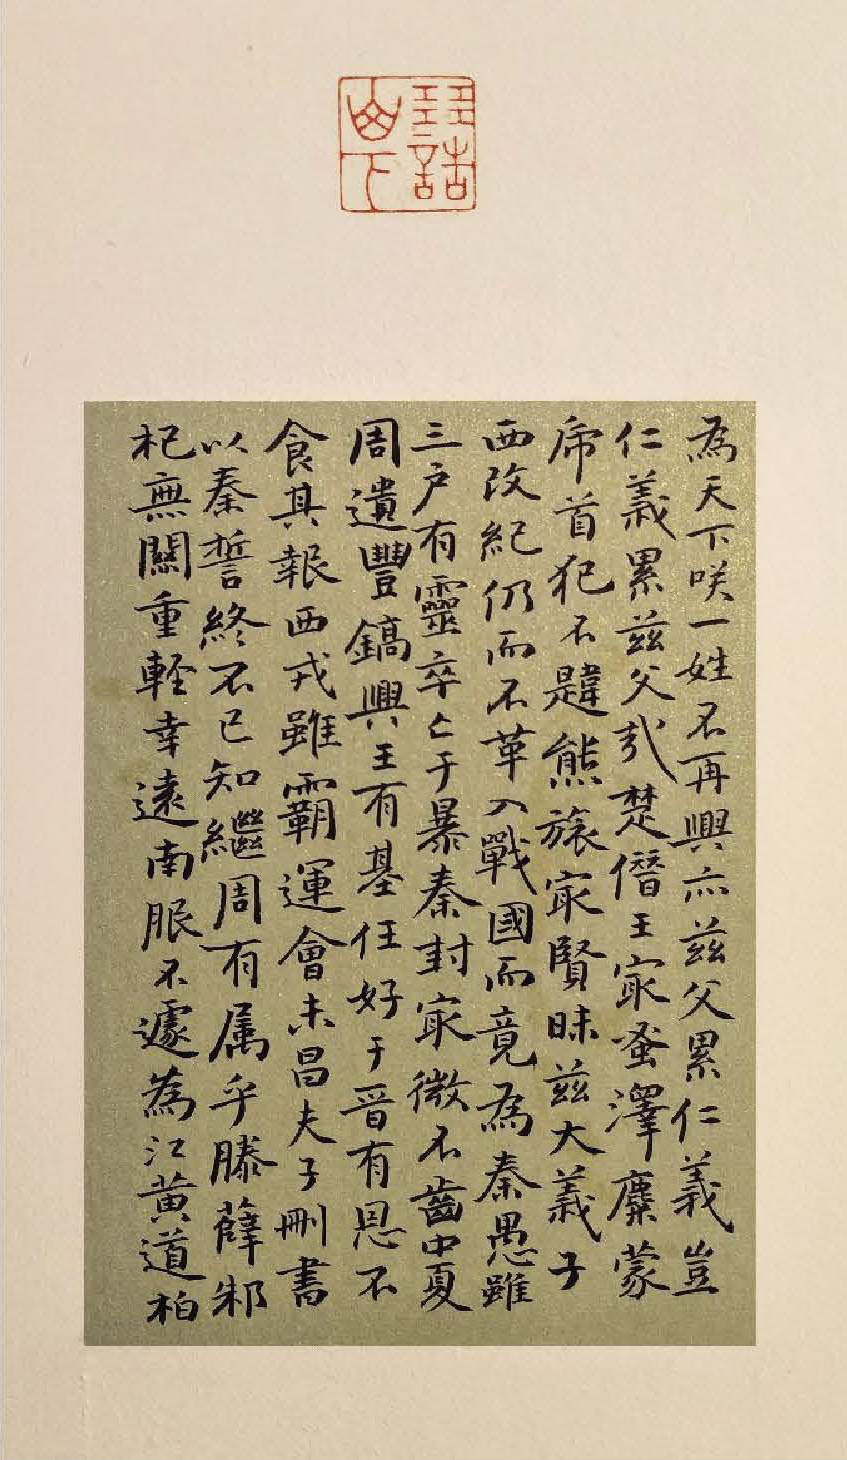 為天下咲一姓不再興亦茲父累仁義豈
仁義累茲父哉楚僭王宷蚤澤麋蒙
帍首犯不韙熊旅宷賢昧茲大義子
西改紀仍而不革入戰國而竟為秦愚雖
三户有靈卒亡于暴秦封宷微不齒中夏
周遺豐鎬興王有基任好于晋有恩不
食其報西戎雖霸運會未昌夫子刪書
以秦誓終不已知繼周有属乎滕薛邾
杞無關重輕幸遠南服不遽為江黄道柏